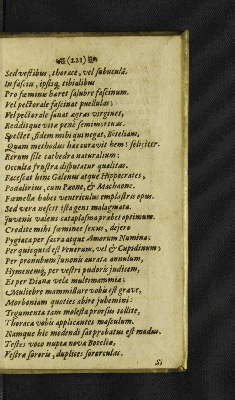 (221)
Sed vestibus, thorace, vel subuculâ.
In fascis, ipsisq; tibialibus
Pro fœminis hæret salubre fascinum.
Vel pectorale fascinat puellulas;
Vel pectorale sanat ægras virgines,
Redditque vitæ penè semimortuas.
Spectet, fidem mihi qui negat, Boteliam,
Quam methodus hæc curavit hem! feliciter.
Rerum sile cathedra naturalium;
Occulta frustra disputatur qualitas.
Facescat hinc Galenus atque Hippocrates,
Podalirius, cum Pæone, & Machaone.
Fæmella habes ventriculus emplastris opus.
Sed vera nescit ista gens malagmata.
Juvenis valens cataplasma præbet optimum.
Credite mihi fæminee sexus, dejero
Pygiacaper sacra atque Amorum Numina;
Per quicquid est Venerum, vel & Cupidinum;
Per pronubam Junonis aurata annulum,
Hymenemq; per vestri pudoris judicem,
Et per Dianæ vela multimammia:
Muliebre mammillare vobis est grave,
Morboniam quoties abire jubemini:
Tegumenta tam molesta prorsus tollite,
Thoraca vobis applicantes masculum.
Namque hic modendi sat probatus est modus.
Testes voco nupta nova Boteliæ,
Vestræ sororis, duplices sororculas.
Si